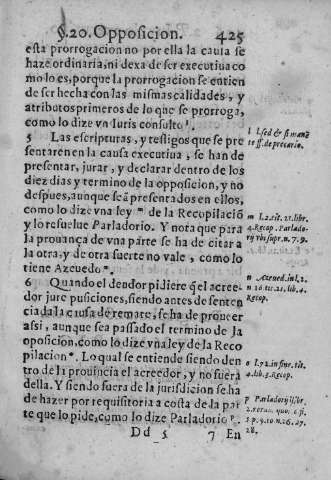 §.20. Oppoſicion. 425
eſta prorrogacion no por ella la cauſa ſe
haze ordinaria, ni dexa de ſer executiua co
mo lo es, porque la prorrogacion ſe entien
de ſer hecha con las miſmas calidades, y
atributos primeros de lo que ſe prorroga,
como lo dize vn Iuris conſulto l.
l l. ſed & ſi manē
te ff. de precario.
5 Las eſcripturas, y teſtigos que ſe pre
ſentaren en la cauſa executiua, ſe han de
preſentar, jurar, y declarar dentro de los
diez dias y termino de la opoſicion, y no
deſpues, aunque ſeā preſentados en ellos,
como lo dize vna ley m de la Recopilaciō
y lo reſuelue Parladorio. Y nota que para
la prouança de vna parte ſe ha de citar a
la otra, y de otra ſuerte no vale, como lo
tiene Azeuedo n.
m l. 2. tit. 21. libr
4. Recop. Parlado-
rij vbi ſupr. n. 7. 9.
n Azeued. in l. 2.
n 16 tit. 21. lib. 4.
Recop.
6 Quando el deudor pidiere q̄ el acree-
dor jure puſiciones, ſiendo antes de ſenten
cia da la cauſa de remate, ſe ha de proueer
aſsi, aunque ſea paſſado el termino de la
opoſicion, como lo dize vna ley de la Reco
pilacion o. Lo qual ſe entiende ſiendo den
tro de la prouincia el acreedor, y no fuera
della. Y ſiendo fuera de la juriſdicion ſe ha
de hazer por requiſitoria a coſta de la par
te que lo pide, como lo dize Parladorio p.
o l. 72. in fine tit.
4. lib. 3. Recop.
p Parladorij libr.
2. rerum quo. c. fi.
5 p. 9. 10. n. 26. 27.
28.
Dd 5 7 En